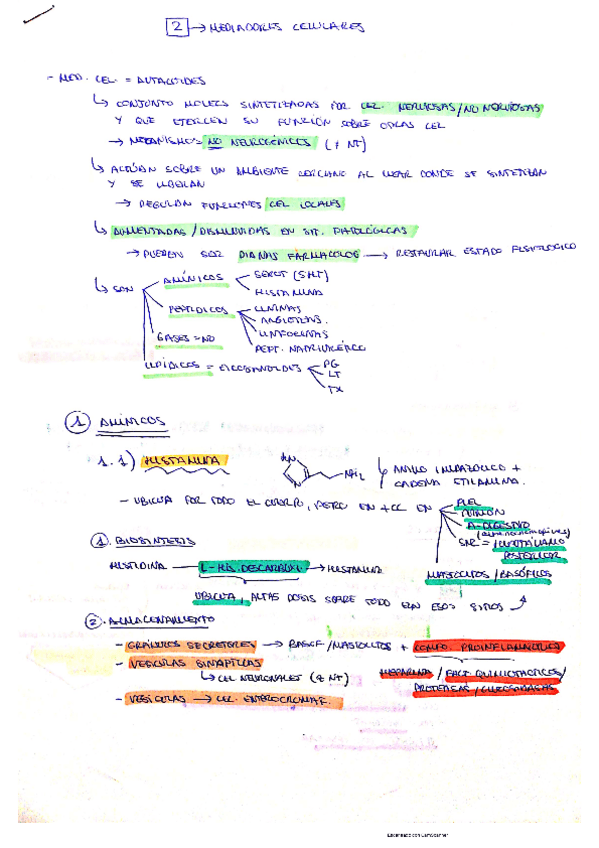 2 → MEDIADORES CELULARES
- MED. CEL. = AUTACOIDES
↳ CONJUNTO MOLECS SINTETIZADAS POR CEL. NERVIOSAS/NO NERVIOSAS
Y QUE EJERCEN SU FUNCIÓN SOBRE OTRAS CEL
→ MECANISMOS NO NEUROGÉNICOS (≠ NT)
↳ ACTÚAN SOBRE UN AMBIENTE CERCANO AL LUGAR DONDE SE SINTETIZAN
Y SE LIBERAN
→ REGULAN FUNCIONES CEL LOCALES
↳ AUMENTADAS/DISMINUIDAS EN SIT. PATOLÓGICAS
→ PUEDEN SER DIANAS FÁRMACOLOG → RESTAURAR ESTADO FISIOLÓGICO
↳ SON
AMÍNICOS
SEROT (5HT)
HISTAMINA
PEPTÍDICOS
CININAS
ANGIOTENS.
LINFOCINAS
PEPT. NATRIURÉTICO
GASES = NO
LIPÍDICOS = EICOSANOIDES
PG
LT
TX
1 AMÍNICOS
1.1) HISTAMINA
HN N NH₂
ANILLO IMIDAZÓLICO +
CADENA ETILAMINA.
- UBICUA POR TODO EL CUERPO, PERO EN +CC EN
PIEL
PULMÓN
A. DIGESTIVO
SNC = HIPOTÁLAMO
POSTERIOR
MASTOCITOS/BASÓFILOS
1. BIOSÍNTESIS
HISTIDINA → L-HIS. DESCARBOX → HISTAMINA
UBICUA, ALTAS DOSIS SOBRE TODO EN ESOS SITIOS
2. ALMACENAMIENTO
- GRÁNULOS SECRETORES → BASOF/MASTOCITOS + COMPO. PROINFLAMATORIOS
HEPARINA / FACT QUIMIOTÁCTICOS /
PROTEASAS /
- VESÍCULAS SINÁPTICAS
↳ CEL NEURONALES (≠ NT)
- VESÍCULAS → CEL. ENTEROCROMAF.
Escaneado con CamScanner